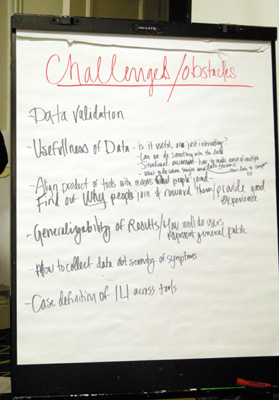 Challenges/obstacles
Data Validation
- Usefullness of Data - is it useful, or just interesting?
- Can we do something with the data
- Situational awareness - how to make sense of multiple
data streams
- what to do when
other data to compare to
- Align product or tools with reasons people joined -
Find out Why people join & reward them/provide good
experience
- Generalizability of Results/How well do users
represent general public.
- How to collect data about severity of symptoms
- Case definition of ILI across tools